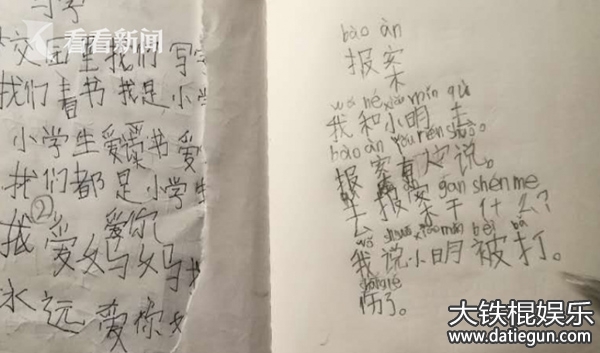 看看新闻
园里我们写
我们看书 我是小学
小学生爱读书 爱
我们都是小学生
②
爱你
我爱妈妈我
永远爱你
bào àn
报案
wǒ hé xiǎo mín qù
我和小明去
bào àn yǒu rén shuō。
报案有人说。
gàn shén me
去报案干什么？
wǒ shuō bèi
我说小明被打。
伤了。
大铁棍娱乐
www.datiegun.com